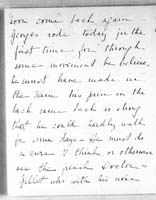 soon come back again
Georges rode today for the
first time for through
some movement he believes
he must have made in
the train his pain in the
back came back so strong
that he could hardly walk
for some days – He must do
a cure I think or otherwise
see the french Doctor
Gillet who with his